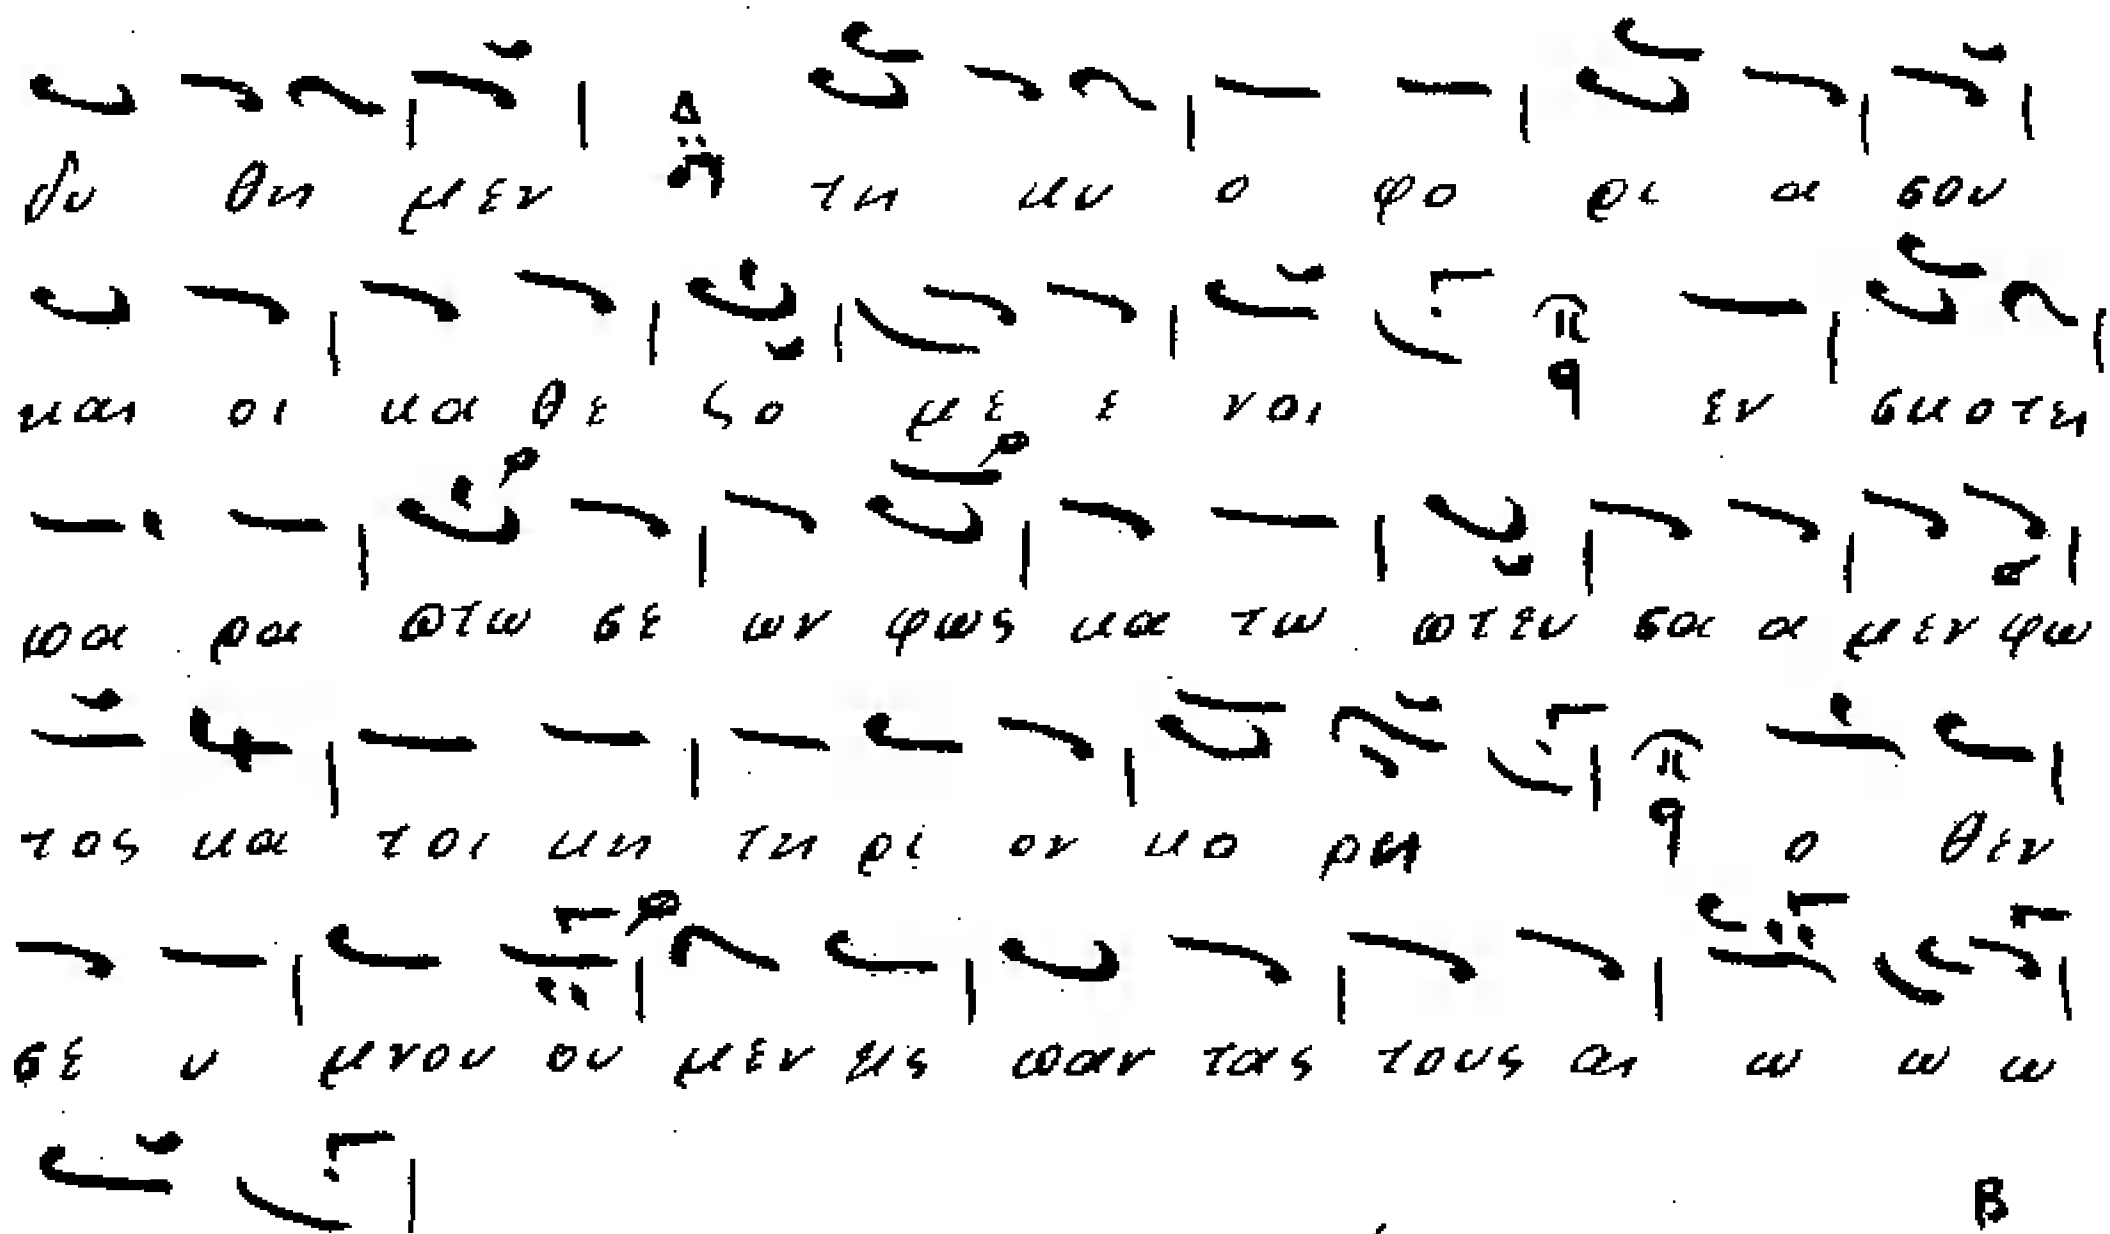 δυ θη μεν Δ τη κυ ο φο ρι α σου
και οι κα θε ζο με ε νοι π q εν σκοτει
πα ρα πτω σε ων φως κα τω πτευ σα α μεν φω
τος κα τοι κη τη ρι ον κο ρη π q ο θεν
σε υ μνου ου μεν εις παν τας τους αι ω ω ω
B